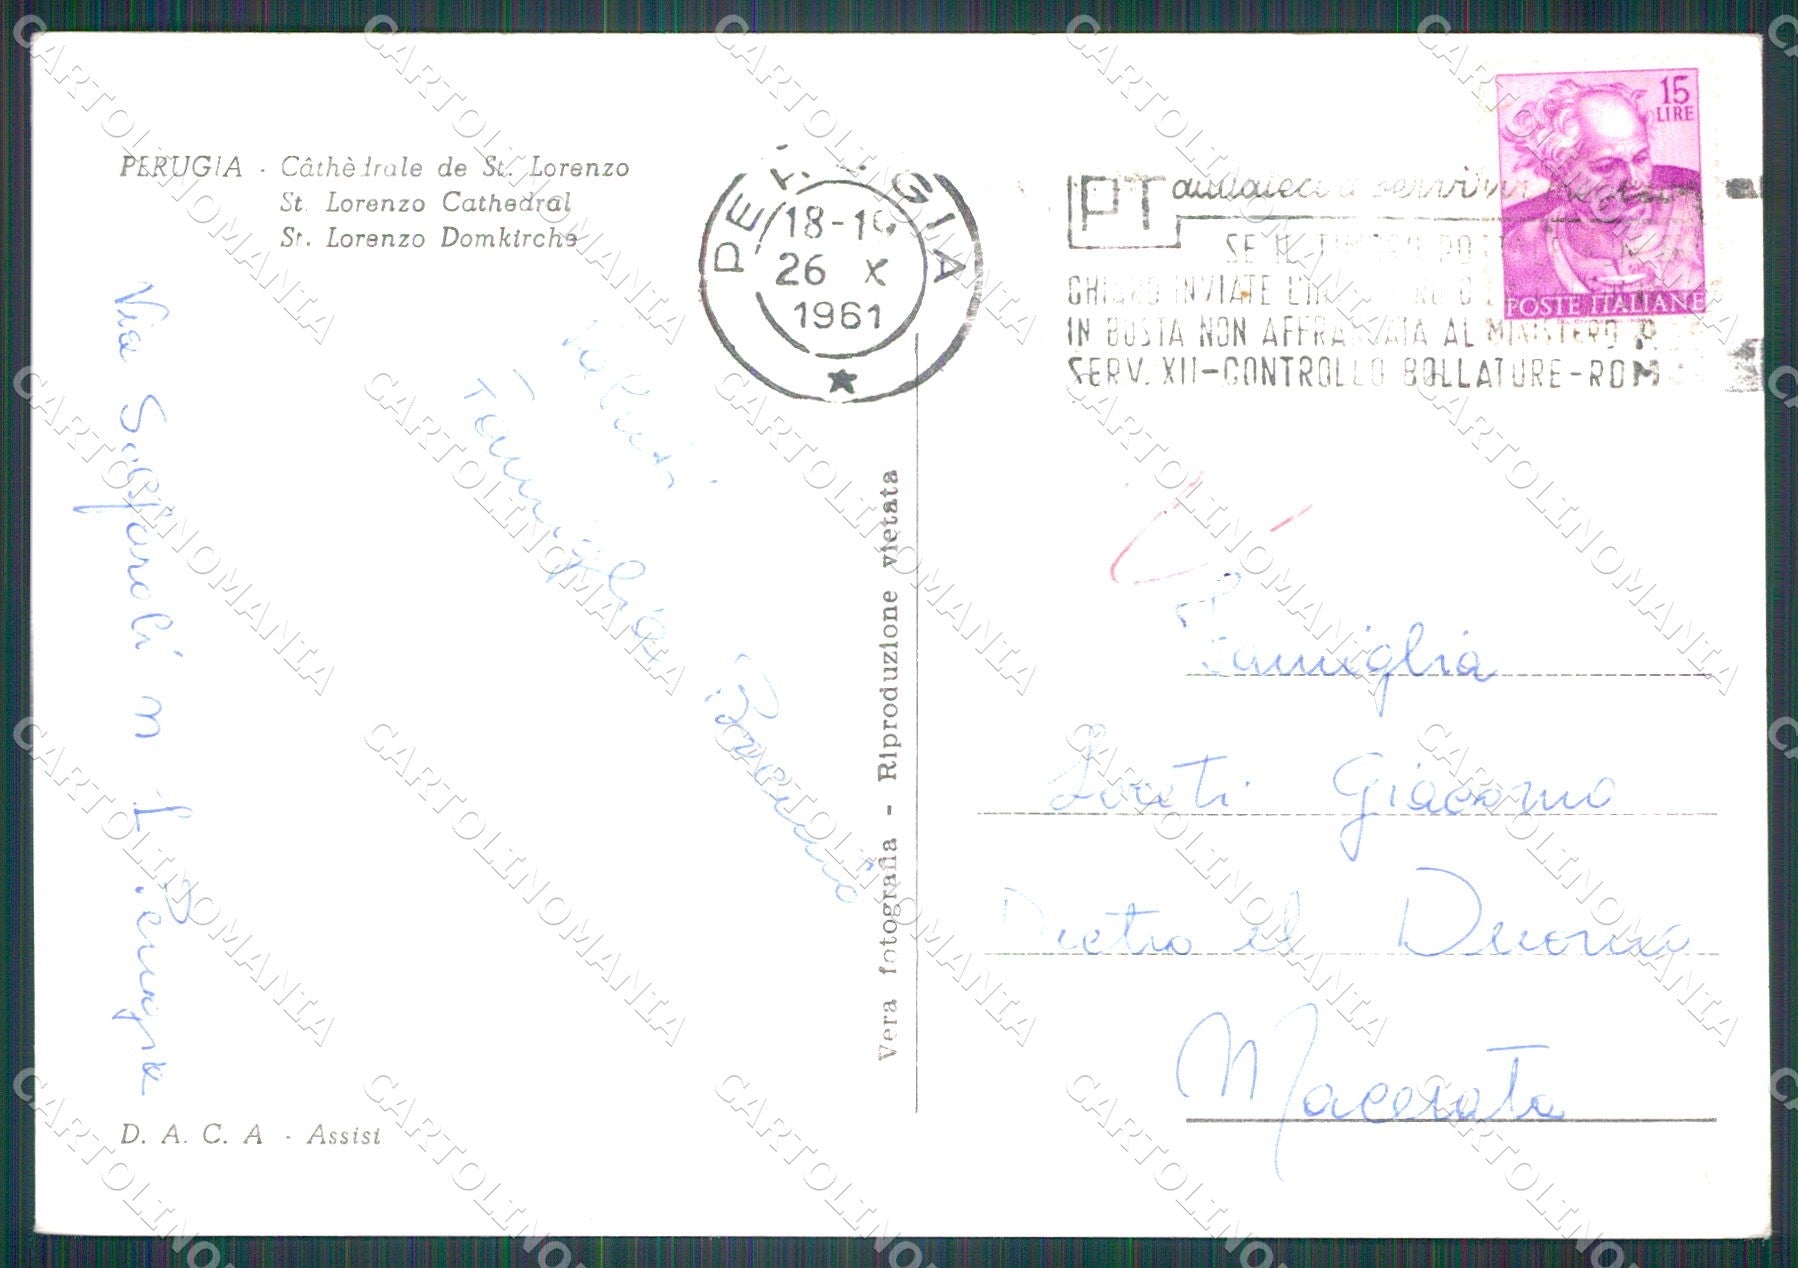 PERUGIA - Câthèdrale de St. Lorenzo
St. Lorenzo Cathedral
St. Lorenzo Domkirche
PERUGIA
18-19
26 X
1961
PT aiutateci a servirvi
SE IL TIMBRO
CHIARO INVIATE
IN BUSTA NON AFFRANCATA AL MINISTERO P.
SERV. XII-CONTROLLO BOLLATURE-ROMA
15
LIRE
POSTE ITALIANE
Via
n 1 Perugia
Saluti
Famiglia
Vera fotografia - Riproduzione vietata
Famiglia
Loreti Giacomo
Dietro il Duomo
Macerata
D. A. C. A - Assisi
CARTOLINOMANIA